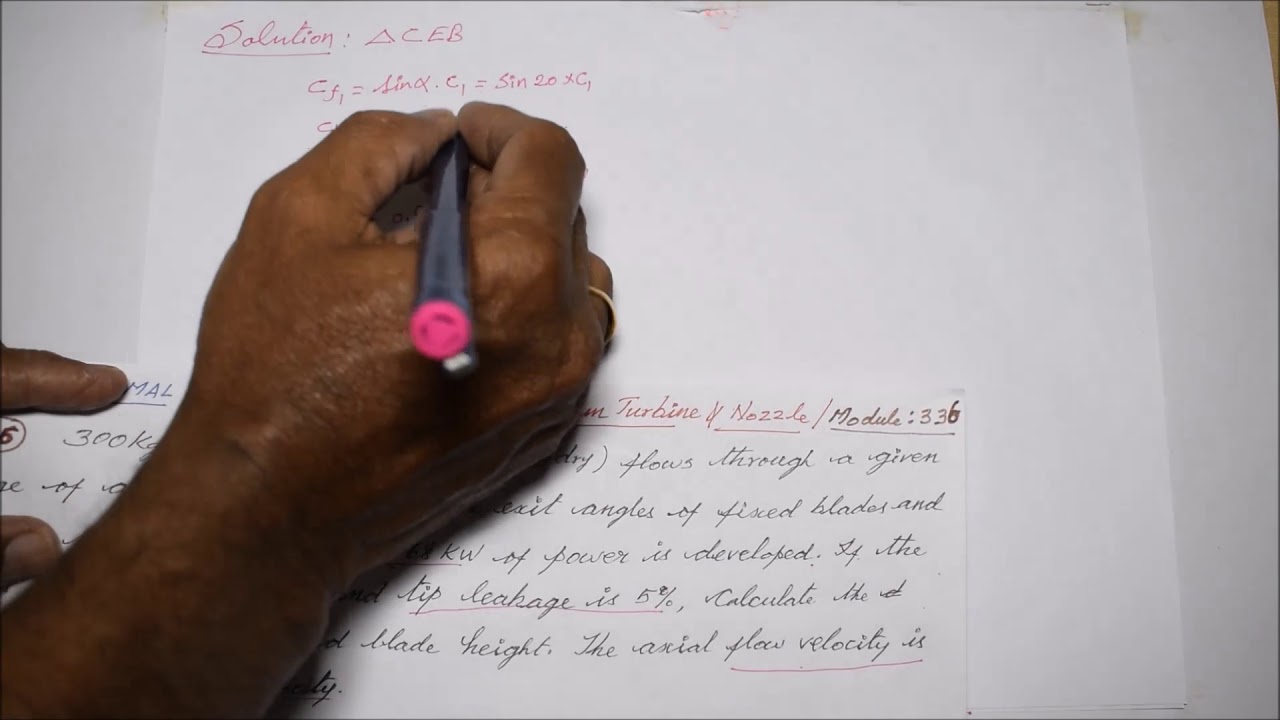 Solution: △CEB
Cf₁ = sinα · C₁ = sin 20 × C₁
MAL
Turbine & Nozzle / Module: 336
300Kg
dry) flows through a given
of
exit angles of fixed blades and
68 KW of power is developed. If the
tip leakage is 5%, Calculate the d
blade height. The axial flow velocity is